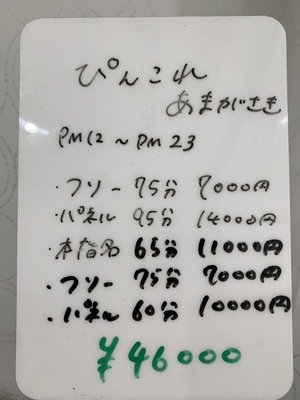 ぴんこれ
あまがさき
PM12〜PM23
・フリー 75分 7000円
・パネル 95分 14000円
・本指名 65分 11000円
・フリー 75分 7000円
・パネル 60分 10000円
¥46000